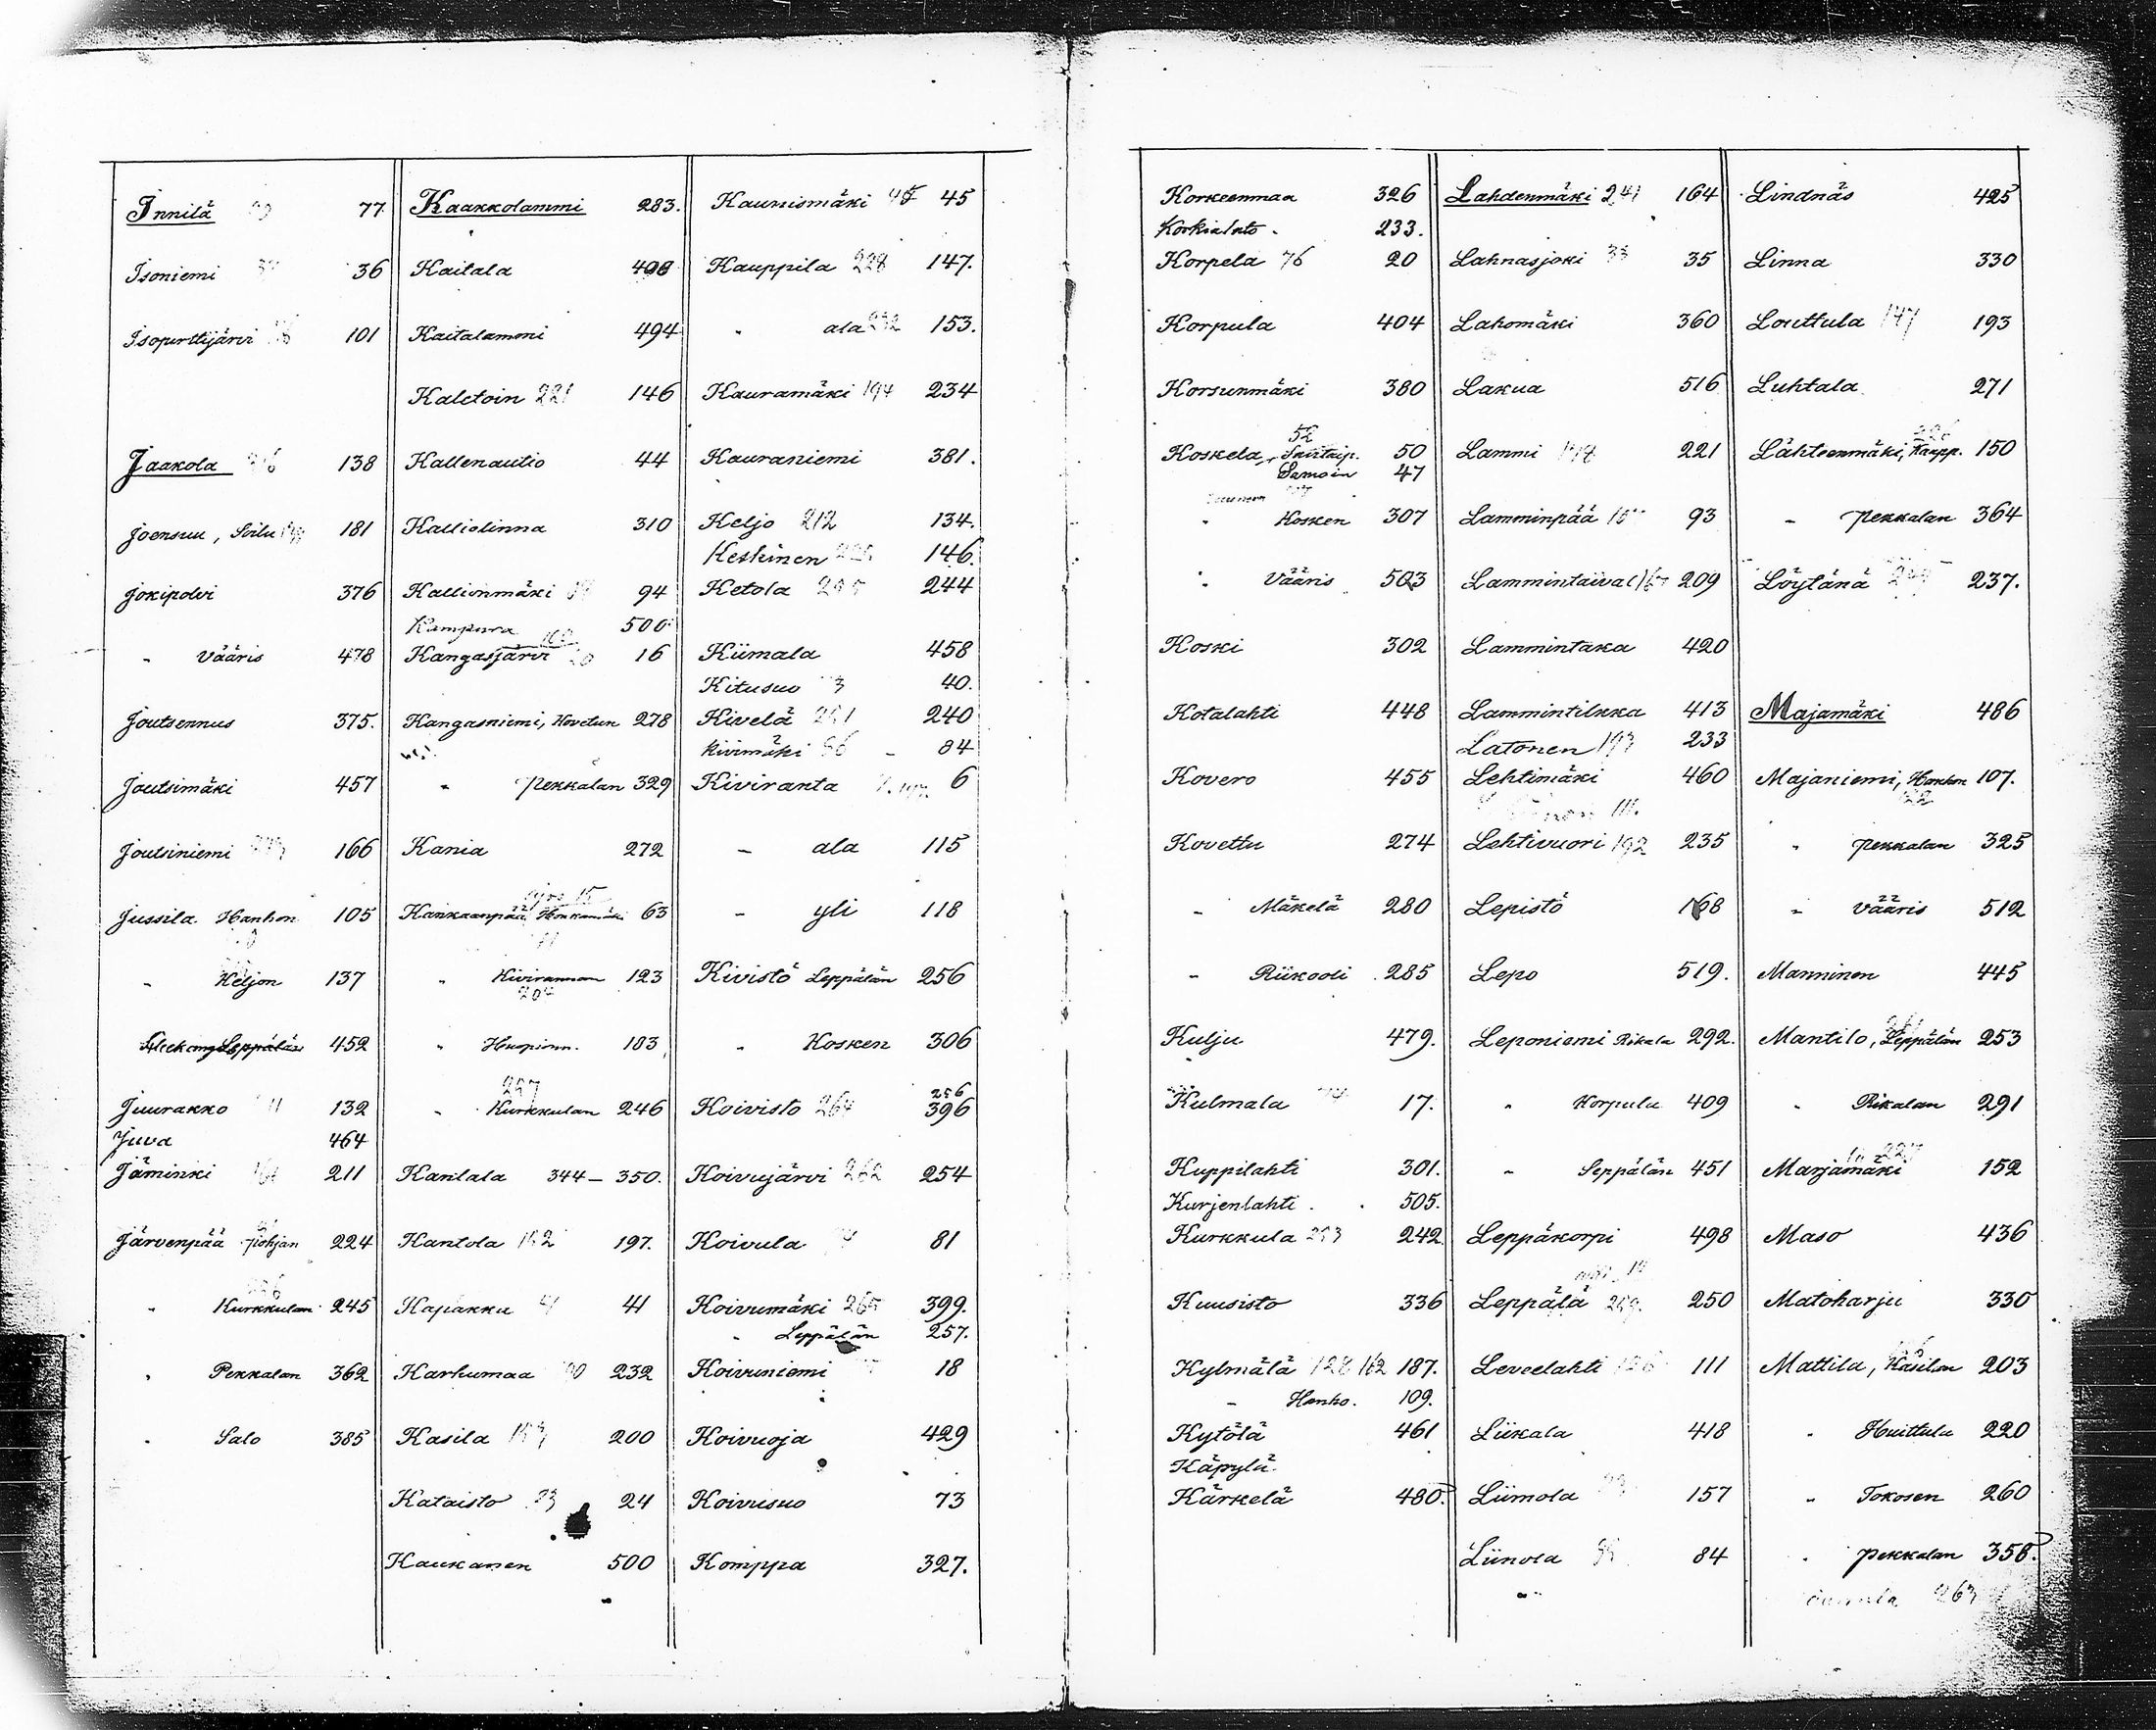 Innilä 77
Isoniemi 36
Isopirttijärvi 101
Jaakola 138
Joensuu, Soilu 181
Jokipolvi 376
" Vääris 478
Joutsennus 375.
Joutsimäki 457
Joutsiniemi 166
Jussila Hanhon 105
" Keljon 137
Leppälän 452
Juurakko 11 132
Juva 464
Jäminki 211
Järvenpää Pohjan 224
" Kurkkulan 245
" Pekkalan 362
" Salo 385
Kaakkolammi 283.
Kaitala 498
Kaitalammi 494
Kaletoin 221 146
Kallenautio 44
Kalliolinna 310
Kallionmäki 94
Kampura 500
Kangasjärvi 16
Kangasniemi, Hovetun 278
" Pekkalan 329
Kania 272
Kankaanpää, 63
" Kivirannan 123
204
" Huopionn. 183
257
" Kurkkulan 246
Kantala 344–350.
Kantola 152 197.
Kapakka 41 41
Karhumaa 232
Kasila 153 200
Kataisto 23 24
Kaukanen 500
Kaunismäki 45
Kauppila 228 147.
" ala 232 153.
Kauramäki 194 234
Kauraniemi 381.
Keljo 212 134.
Keskinen 146.
Ketola 255 244
Kiimala 458
Kitusuo 40.
Kivelä 251 240
Kivimäki 86 84
Kiviranta 6
– ala 115
– yli 118
Kivistö Leppälän 256
" Kosken 306
256
Koivisto 264 396
Koivujärvi 262 254
Koivula 81
Koivumäki 265 399.
" Leppälän 257.
Koivuniemi 18
Koivuoja 429
Koivusuo 73
Komppa 327.
Korkeenmaa 326
Korkialato. 233.
Korpela 76 20
Korpula 404
Korsunmäki 380
52
Koskela, Santaip. 50
Samoin 47
" Kosken 307
" Vääris 503
Koski 302
Kotalahti 448
Kovero 455
Kovettu 274
– Mäkelä 280
– Riikooli 285
Kulju 479.
Kulmala 17.
Kuppilahti 301.
Kurjenlahti. 505.
Kurkkula 253 242
Kuusisto 336
Kylmälä 128 162 187.
– Hanho. 109.
Kytölä 461
Käpylä.
Kärkelä 480.
Lahdenmäki 241 164
Lahnasjoki 33 35
Lahomäki 360
Lakua 516
Lammi 221
Lamminpää 93
Lammintaival 167 209
Lammintaka 420
Lammintilkka 413
Latonen 193 233
Lehtimäki 460
Lehtivuori 192 235
Lepistö 168
Lepo 519.
Leponiemi Rikala 292.
" Korpula 409
– Seppälän 451
Leppäkorpi 498
Leppälä 259. 250
Leveelahti 126 111
Liikala 418
Liimola 157
Liinola 84
Lindnäs 425
Linna 330
Louttula 147 193
Luhtala 271
Lähteenmäki, Kaupp. 150
– Pekkalan 364
Löytänä 237.
Majamäki 486
Majaniemi, Hanhon 107.
122
" Pekkalan 325
– Vääris 512
Manninen 445
Mantilo, Leppälän 253
" Rikalan 291
Marjamäki 152
Maso 436
Matoharju 330
Mattila, Kasilan 203
" Huittula 220
" Tokosen 260
" Pekkalan 358.
263